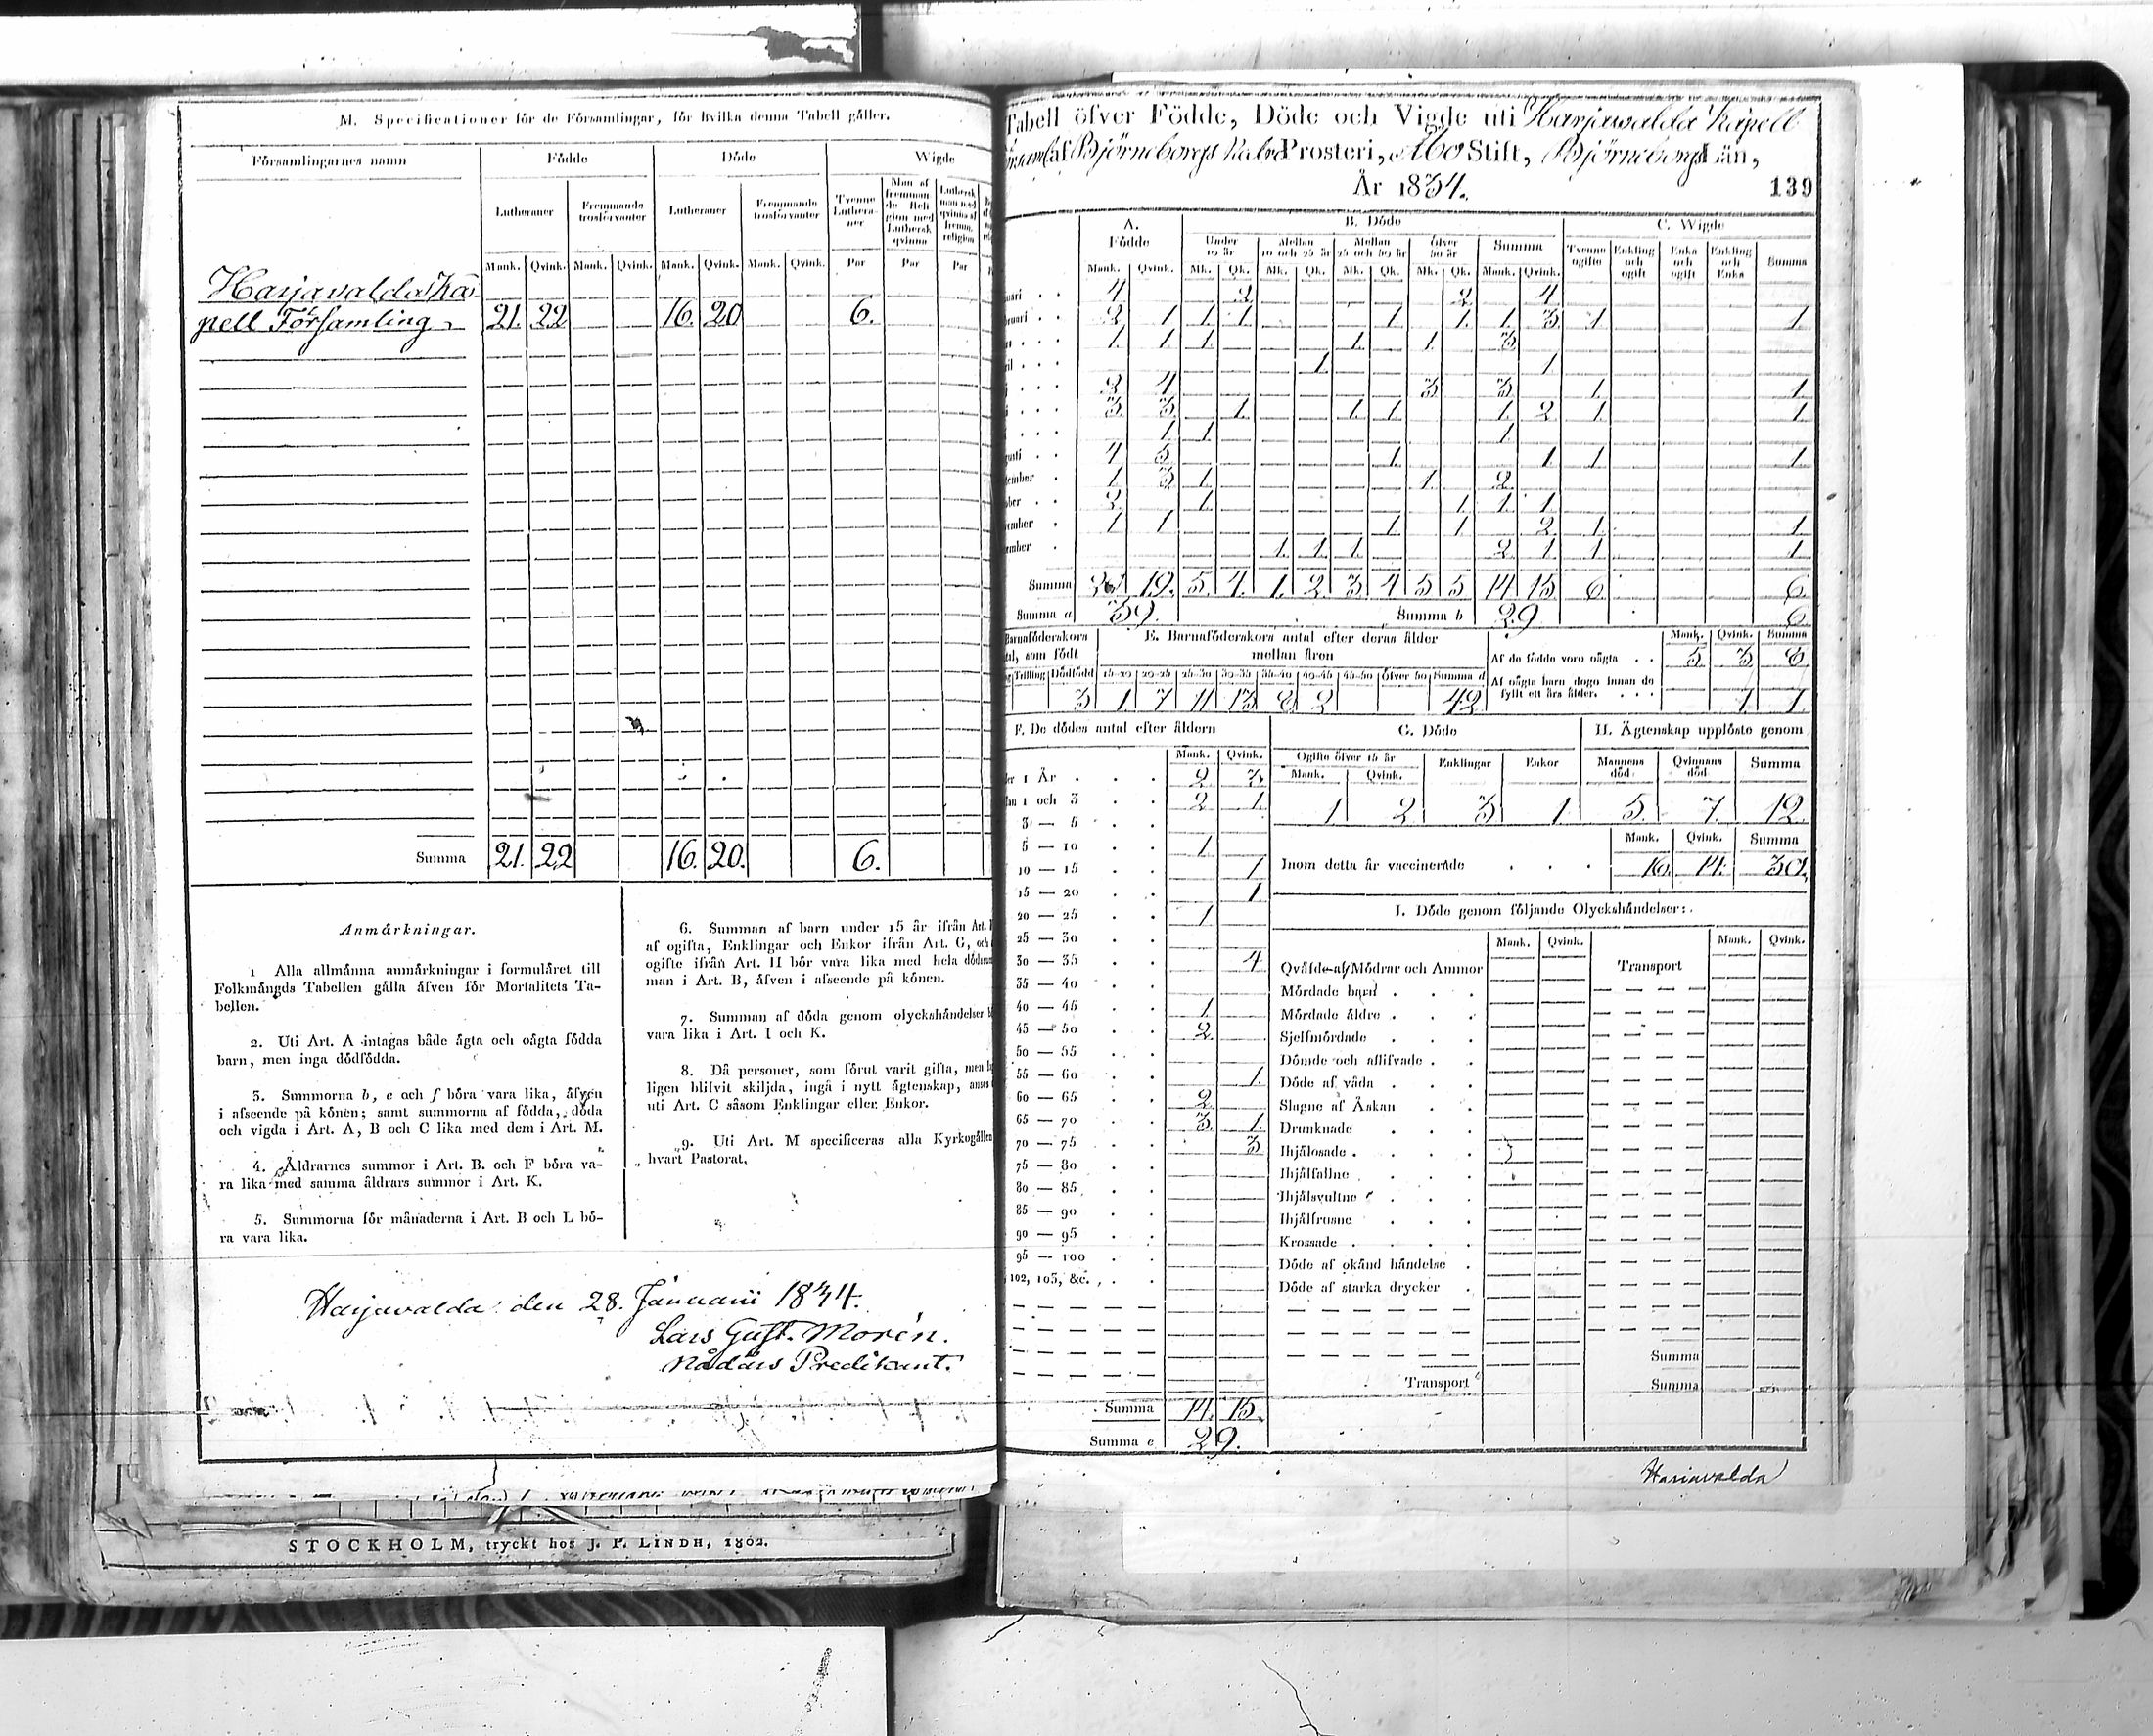 M. Specificationer för de Församlingar, för hvilka denna Tabell gäller.
Församlingarnes namn Födde Döde Wigde
Lutheraner Fremmande trosförvanter Lutheraner Fremmande trosförvanter Tvenne Lutheraner Man af fremmande Religion med Luthersk qvinna Luthersk man med qvinna af fremm. religion
Mank. Qvink. Mank. Qvink. Mank. Qvink. Mank. Qvink. Par Par Par
Harjavalda Ka-
pell Församling 21. 22 16. 20 6.
Summa 21. 22 16. 20. 6.
Anmärkningar.
1 Alla allmänna anmärkningar i formuläret till
Folkmängds Tabellen gälla äfven för Mortalitets Ta-
bellen.
2. Uti Art. A intagas både ägta och oägta födda
barn, men inga dödfödda.
3. Summorna b, e och f böra vara lika, äfven
i afseende på könen; samt summorna af födda, döda
och vigda i Art. A, B och C lika med dem i Art. M.
4. Åldrarnes summor i Art. B. och F böra va-
ra lika med samma åldrars summor i Art. K.
5. Summorna för månaderna i Art. B och L bö-
ra vara lika.
6. Summan af barn under 15 år ifrån Art.
af ogifta, Enklingar och Enkor ifrån Art. G, och
ogifte ifrån Art. H bör vara lika med hela
man i Art. B, äfven i afseende på könen.
7. Summan af döda genom olyckshändelser
vara lika i Art. I och K.
8. Då personer, som förut varit gifta, men
ligen blifvit skiljda, ingå i nytt ägtenskap, anses
uti Art. C såsom Enklingar eller Enkor.
9. Uti Art. M specificeras alla Kyrkogällen
hvart Pastorat.
Harjavalda den 28. Januarii 1834.
Lars Gust. Morén.
Nådårs Predikant.
STOCKHOLM, tryckt hos J. P. LINDH, 1802.
Tabell öfver Födde, Döde och Vigde uti Harjawalda Kapell
af Björneborgs Prosteri, Åbo Stift, Björneborgs Län,
År 1834.
139
A. Födde B. Döde C. Wigde
Under 10 år Mellan 10 och 25 år Mellan 25 och 50 år öfver 50 år Summa Tvenne ogifte Enkling och ogift Enka och ogift Enkling och Enka Summa
Mank. Qvink. Mk. Qk. Mk. Qk. Mk. Qk. Mk. Qk. Mank. Qvink.
4 2 2 4
2 1 1. 1 1 1. 1. 3 1 1
1. 1 1 1. 1 3
1 1
2 4 3 3 1. 1
3 3 1. 1 1 1. 2 1 1
1 1 1.
4 5 1 1 1 1
1 3 1 1 2
2 1 1 1. 1
1 1 1 1 2 1 1
1 1 1 2 1 1 1
Summa 19. 5. 4. 1. 2. 3 4 5 5 14 15 6. 6.
Summa a 39. Summa b 29 6
Barnaföderskors som födt E. Barnaföderskors antal efter deras ålder mellan åren
Mank. Qvink. Summa
Af de födde voro oägta 5 3 8
Trilling Dödfödd 15-20 20-25 25-30 30-35 35-40 40-45 45-50 öfver 50 Summa d
3 1 7 11 13 8 2 42
Af oägta barn dogo innan de
fyllt ett års ålder. 1 1
F. De dödes antal efter åldern
Mank. Qvink.
1 År 2 3
1 och 3 2 1.
3 — 5
5 — 10 1.
10 — 15 1
15 — 20 1.
20 — 25 1
25 — 30
30 — 35 4
35 — 40
40 — 45 1
45 — 50 2
50 — 55
55 — 60 1.
60 — 65 2
65 — 70 3. 1.
70 — 75 3
75 — 80
80 — 85
85 — 90
90 — 95
95 — 100
102, 105, &c.
Summa 14. 15.
Summa e 29.
G. Döde H. Ägtenskap upplöste genom
Ogifte öfver 15 år Enklingar Enkor Mannens död Qvinnans död Summa
Mank. Qvink.
1 2 3 1. 5. 7. 12.
Mank. Qvink. Summa
Inom detta år vaccinerade 16. 14. 30.
I. Döde genom följande Olyckshändelser:
Mank. Qvink. Mank. Qvink.
Qväfde af Mödrar och Ammor Transport
Mördade barn
Mördade äldre
Sjelfmördade
Dömde och aflifvade
Döde af våda
Slagne af Åskan
Drunknade
Ihjälosade
Ihjälfallne
Ihjälsvultne
Ihjälfrosne
Krossade
Döde af okänd händelse
Döde af starka drycker
Summa
Transport Summa
Harjavalda